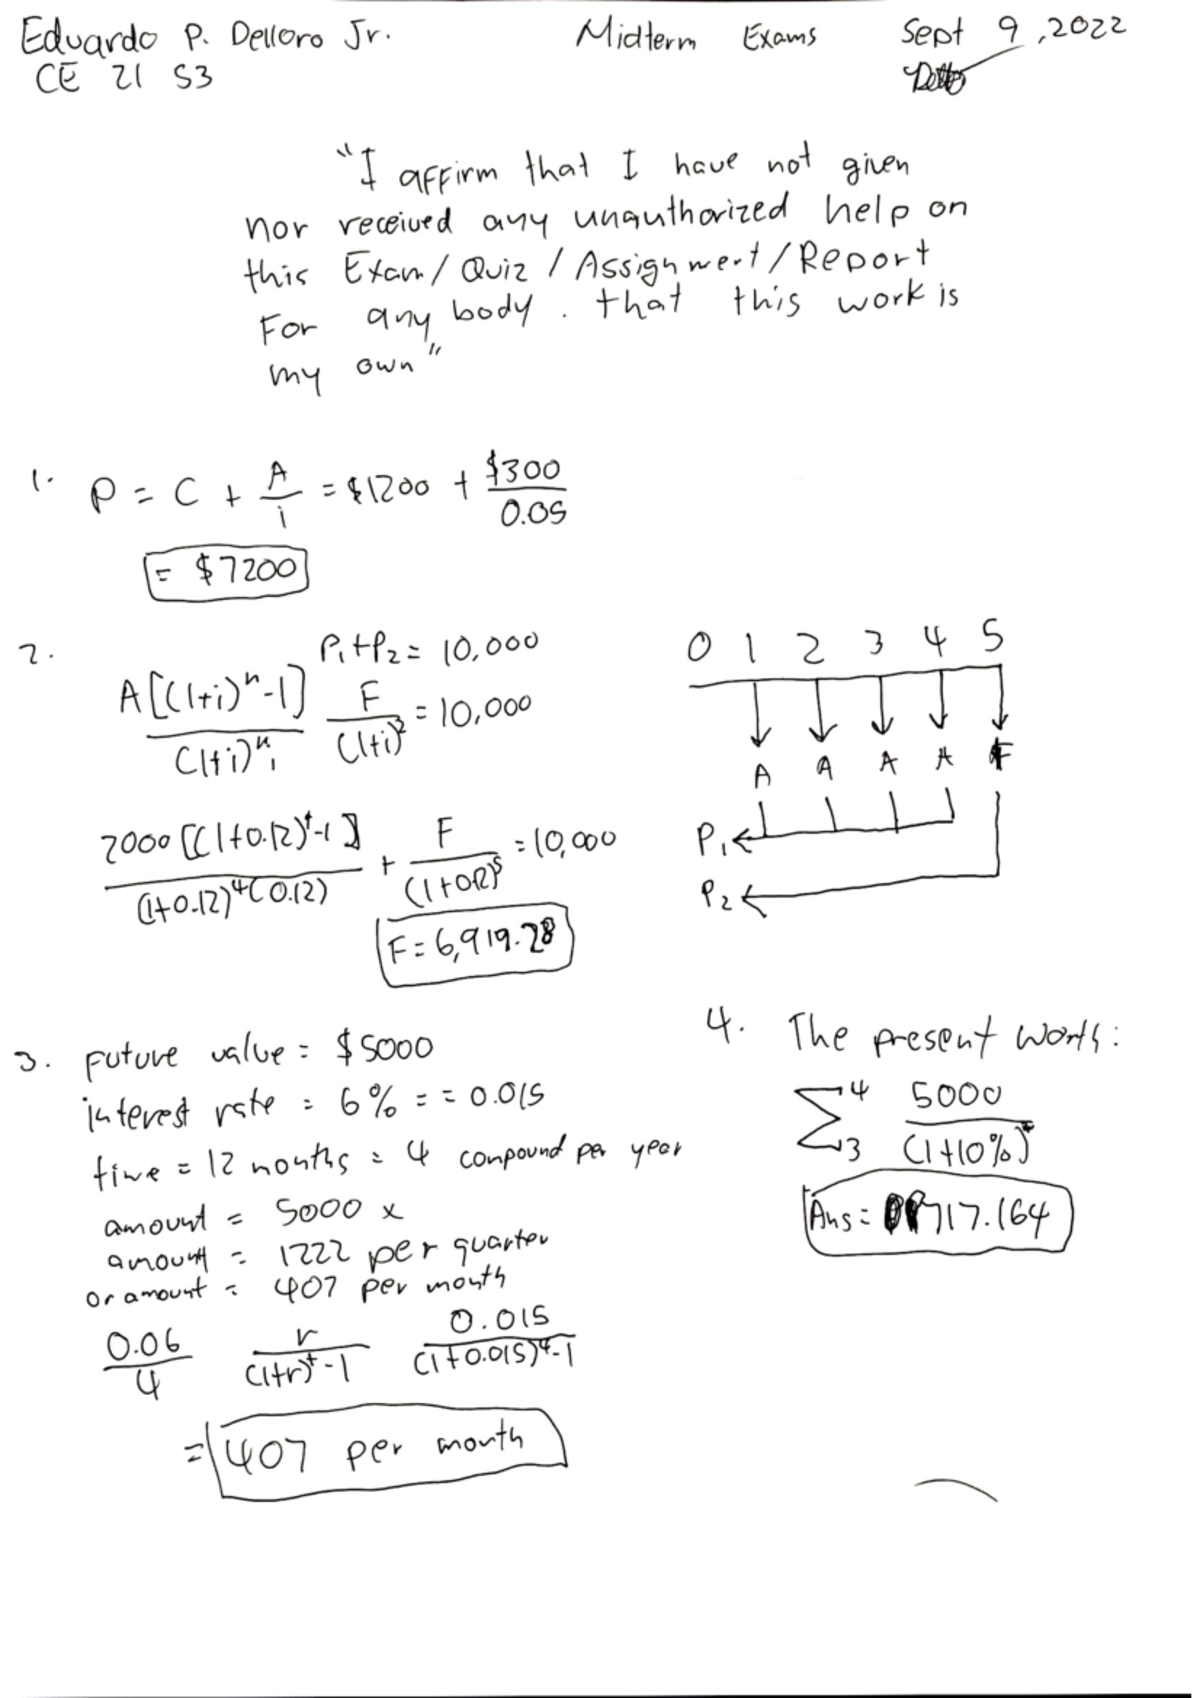 Eduardo P. Delloro Jr. Midterm Exams Sept 9, 2022
CE 21 S3
"I affirm that I have not given
nor received any unauthorized help on
this Exam/Quiz/Assignment/Report
For any body. that this work is
my own"
1. P = C + A/i = $1200 + $300/0.05
= $7200
2. P₁+P₂ = 10,000
A[(1+i)ⁿ-1]/(1+i)ⁿi F/(1+i) = 10,000
2000[(1+0.12)⁴-1]/(1+0.12)⁴(0.12) + F/(1+0.12)⁵ = 10,000
F = 6,919.28
0 1 2 3 4 5
A A A A F
P₁
P₂
3. Future value = $5000
interest rate = 6% = = 0.015
time = 12 months = 4 compound per year
amount = 5000 x
amount = 1222 per quarter
or amount = 407 per month
0.06/4 r/(1+r)ᵗ-1 0.015/(1+0.015)⁴-1
= 407 per month
4. The present worth:
∑⁴₃ 5000/(1+10%)
Ans = 717.164